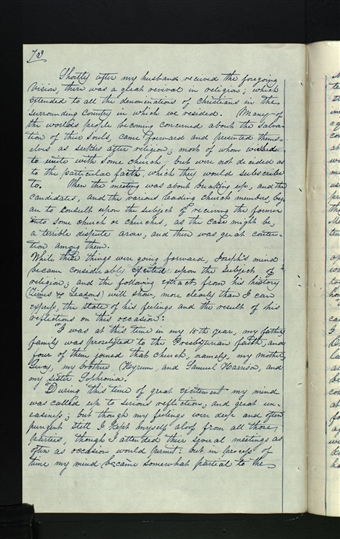 73
Shortly after my husband received the foregoing
vision, there was a great revival in religion; which
extended to all the denominations of christians in the
surrounding country in which we resided. Many of
the world's people becoming concerned about the salva-
tion of their souls, came forward and presented them-
selves as seekers after religion; most of whom wished
to unite with some church, but were not decided as
to the particular faith, which they would subscribe
to. When the meeting was about breaking up, and the
candidates, and the various leading church members beg-
an to consult upon the subject of receiving the former
into some church or churches, as the case might be,
a terrible dispute arose, and there was great conten-
tion among them.
While these things were going forward, Joseph's mind
became considerably upon the subject of
religion; and the following extract from his history
(Times & Seasons) will show, more clearly than I can
express, the state of his feelings and the result of his
reflections on this occasion:
I was at this time in my 15th year, my father's
family was proselyted to the Presbyterian faith, and
four of them joined that church, namely, my mother,
Lucy, my brothers Hyrum, and Samuel Harrison, and
my sister Sophronia.
During this time of great excitement my mind
was called up to serious reflection, and great un-
easiness; but though my feelings were deep and often
pungent still I kept myself aloof from all those
parties, though I attended their several meetings as
often as occasion would permit: but in process of
time my mind became somewhat partial to the